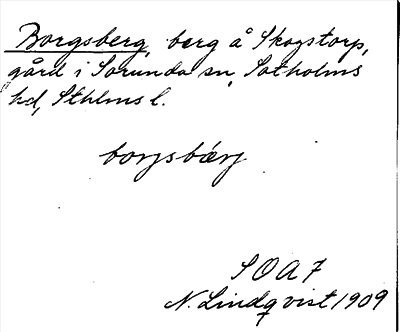 Borgsberg, berg å Skogstorp,
gård i Sorunda sn, Sotholms
hd, Sthlms l.
borjsbærj
SOAF
N. Lindqvist 1909